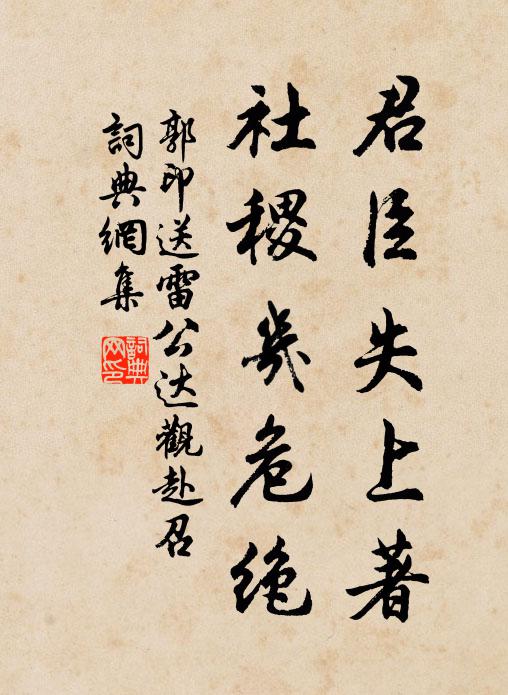 君臣失上著
社稷幾危绝
郭印送雷公达觀赴召
詞典網集
詞典
网印